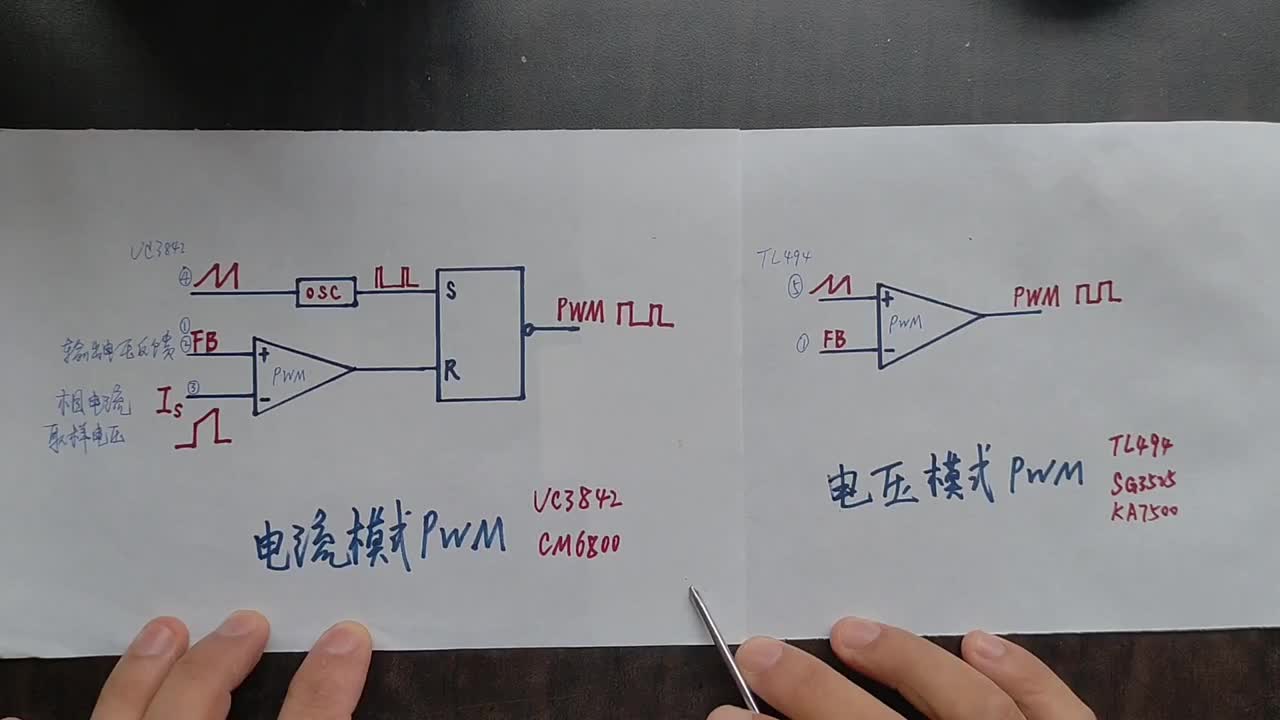 UC3842
④
OSC
S
PWM
①
② FB
输出电压反馈
+
PWM
R
③
相电流 Is
-
取样电压
电流模式PWM
UC3842
CM6800
TL494
⑤
+
PWM
PWM
① FB
-
电压模式PWM
TL494
SG3525
KA7500